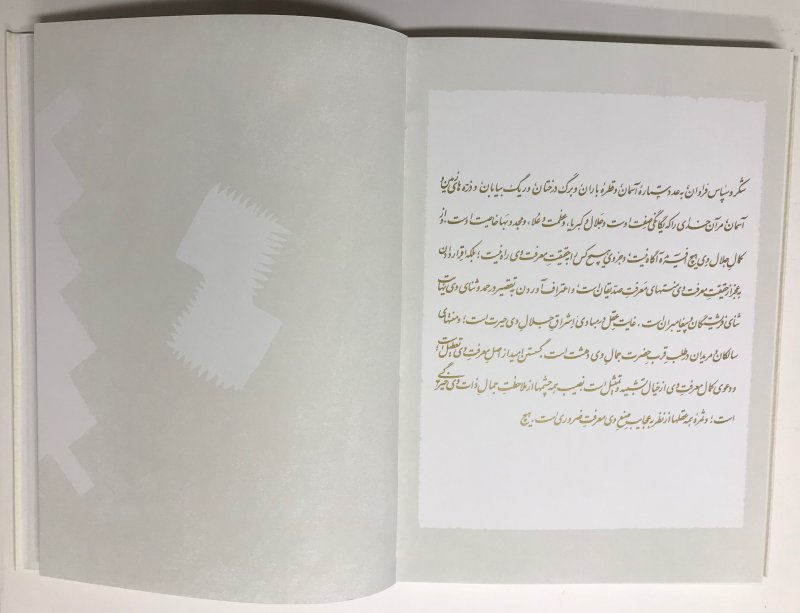 شکر و سپاس فراوان به عدد ستاره آسمان و قطره باران و برگ درختان و ریگ بیابان و ذره‌های زمین و
آسمان مر آن خدای را که یگانگی صفت اوست و جلال و کبریا، و عظمت و علا، و مجد و بها خاصیت اوست. و از
کمال جلال وی هیچ آفریده آگاه نیست و جز وی هیچ کس را به حقیقتِ معرفت وی راه نیست؛ بلکه اقرار دادن
به عجز از حقیقتِ معرفت وی منتهای معرفت صدیقان است و اعتراف آوردن به تقصیر در حمد و ثنای وی نهایت
ثنای فرشتگان و پیغامبران است. غایت عقل در مبادی اشراقِ جلال وی حیرت است؛ و منتهای
سالکان و مریدان در طلب قرب حضرت جمال وی دهشت است. گسستن امید از اصل معرفت وی تعطیل است
و دعوی کمال معرفت وی از خیال تشبیه و تمثیل است. نصیب همه چشمها از ملاحظت جمال ذات وی خیرگی
است؛ و ثمره همه عقلها از نظر به عجایب صنع وی معرفت ضروری است. هیچ